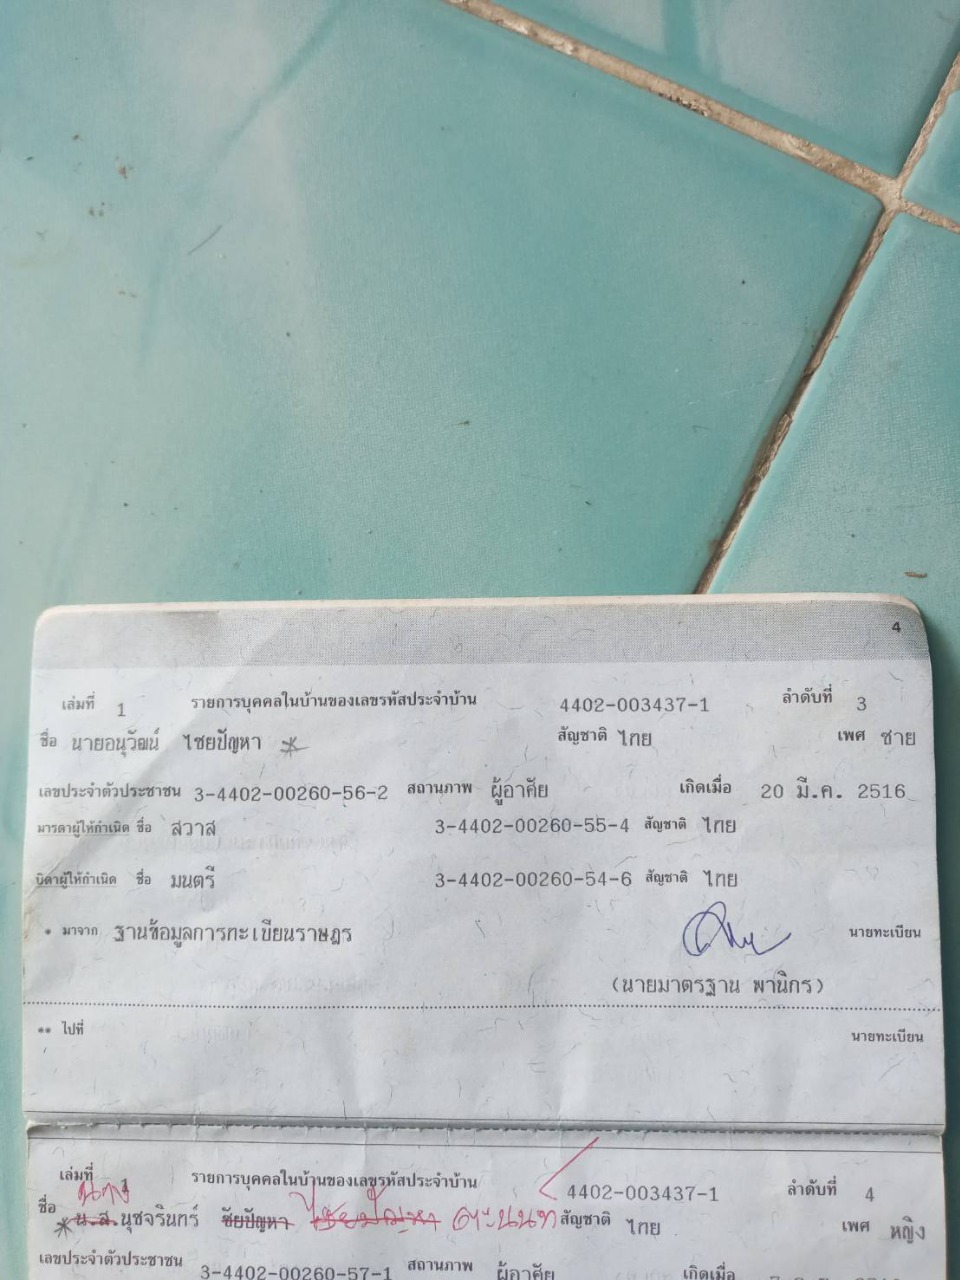 4
เล่มที่ 1 รายการบุคคลในบ้านของเลขรหัสประจำบ้าน 4402-003437-1 ลำดับที่ 3
ชื่อ นายอนุวัฒน์ ไชยปัญหา สัญชาติ ไทย เพศ ชาย
เลขประจำตัวประชาชน 3-4402-00260-56-2 สถานภาพ ผู้อาศัย เกิดเมื่อ 20 มี.ค. 2516
มารดาผู้ให้กำเนิด ชื่อ สวาส 3-4402-00260-55-4 สัญชาติ ไทย
บิดาผู้ให้กำเนิด ชื่อ มนตรี 3-4402-00260-54-6 สัญชาติ ไทย
* มาจาก ฐานข้อมูลการทะเบียนราษฎร นายทะเบียน
(นายมาตรฐาน พานิกร)
** ไปที่ นายทะเบียน
เล่มที่ 1 รายการบุคคลในบ้านของเลขรหัสประจำบ้าน 4402-003437-1 ลำดับที่ 4
นาง
ชื่อ น.ส.นุชจรินทร์ ชัยปัญหา ไชยปัญหา สัญชาติ ไทย เพศ หญิง
เลขประจำตัวประชาชน 3-4402-00260-57-1 สถานภาพ ผู้อาศัย เกิดเมื่อ